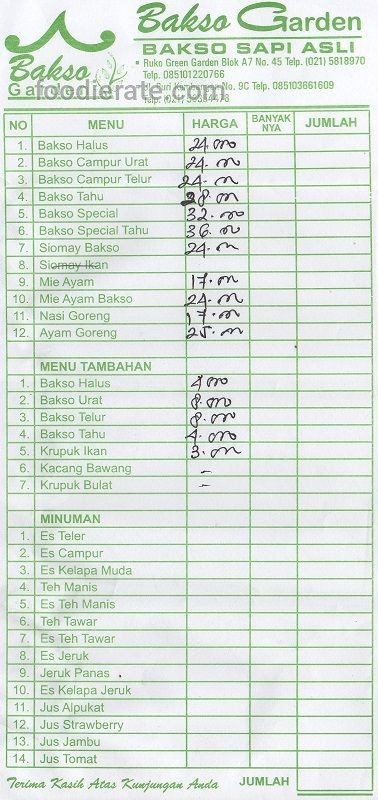 Bakso Garden
BAKSO SAPI ASLI
Bakso Garden
• Ruko Green Garden Blok A7 No. 45 Telp. (021) 5818970
Telp. 085101220766
No. 9C Telp. 085103661609
Telp. (021)
foodierate.com
NO MENU HARGA BANYAK NYA JUMLAH
1. Bakso Halus 24.000
2. Bakso Campur Urat 24.000
3. Bakso Campur Telur 24.000
4. Bakso Tahu 28.000
5. Bakso Special 32.000
6. Bakso Special Tahu 36.000
7. Siomay Bakso 24.000
8. Siomay Ikan
9. Mie Ayam 17.000
10. Mie Ayam Bakso 24.000
11. Nasi Goreng 17.000
12. Ayam Goreng 25.000
MENU TAMBAHAN
1. Bakso Halus 4.000
2. Bakso Urat 8.000
3. Bakso Telur 8.000
4. Bakso Tahu 4.000
5. Krupuk Ikan 3.000
6. Kacang Bawang -
7. Krupuk Bulat -
MINUMAN
1. Es Teler
2. Es Campur
3. Es Kelapa Muda
4. Teh Manis
5. Es Teh Manis
6. Teh Tawar
7. Es Teh Tawar
8. Es Jeruk
9. Jeruk Panas
10. Es Kelapa Jeruk
11. Jus Alpukat
12. Jus Strawberry
13. Jus Jambu
14. Jus Tomat
Terima Kasih Atas Kunjungan Anda JUMLAH